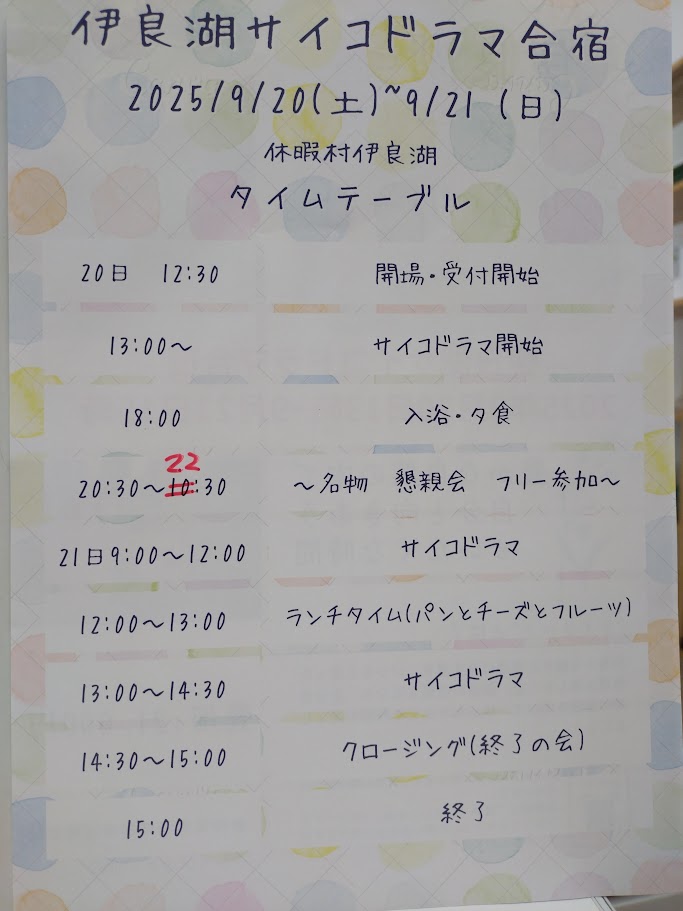 伊良湖サイコドラマ合宿
2025/9/20(土)~9/21 (日)
休暇村伊良湖
タイムテーブル
20日 12:30 開場・受付開始
13:00～ サイコドラマ開始
18:00 入浴・夕食
22
20:30～10:30 ～名物 懇親会 フリー参加～
21日9:00～12:00 サイコドラマ
12:00～13:00 ランチタイム(パンとチーズとフルーツ)
13:00～14:30 サイコドラマ
14:30～15:00 クロージング(終了の会)
15:00 終了